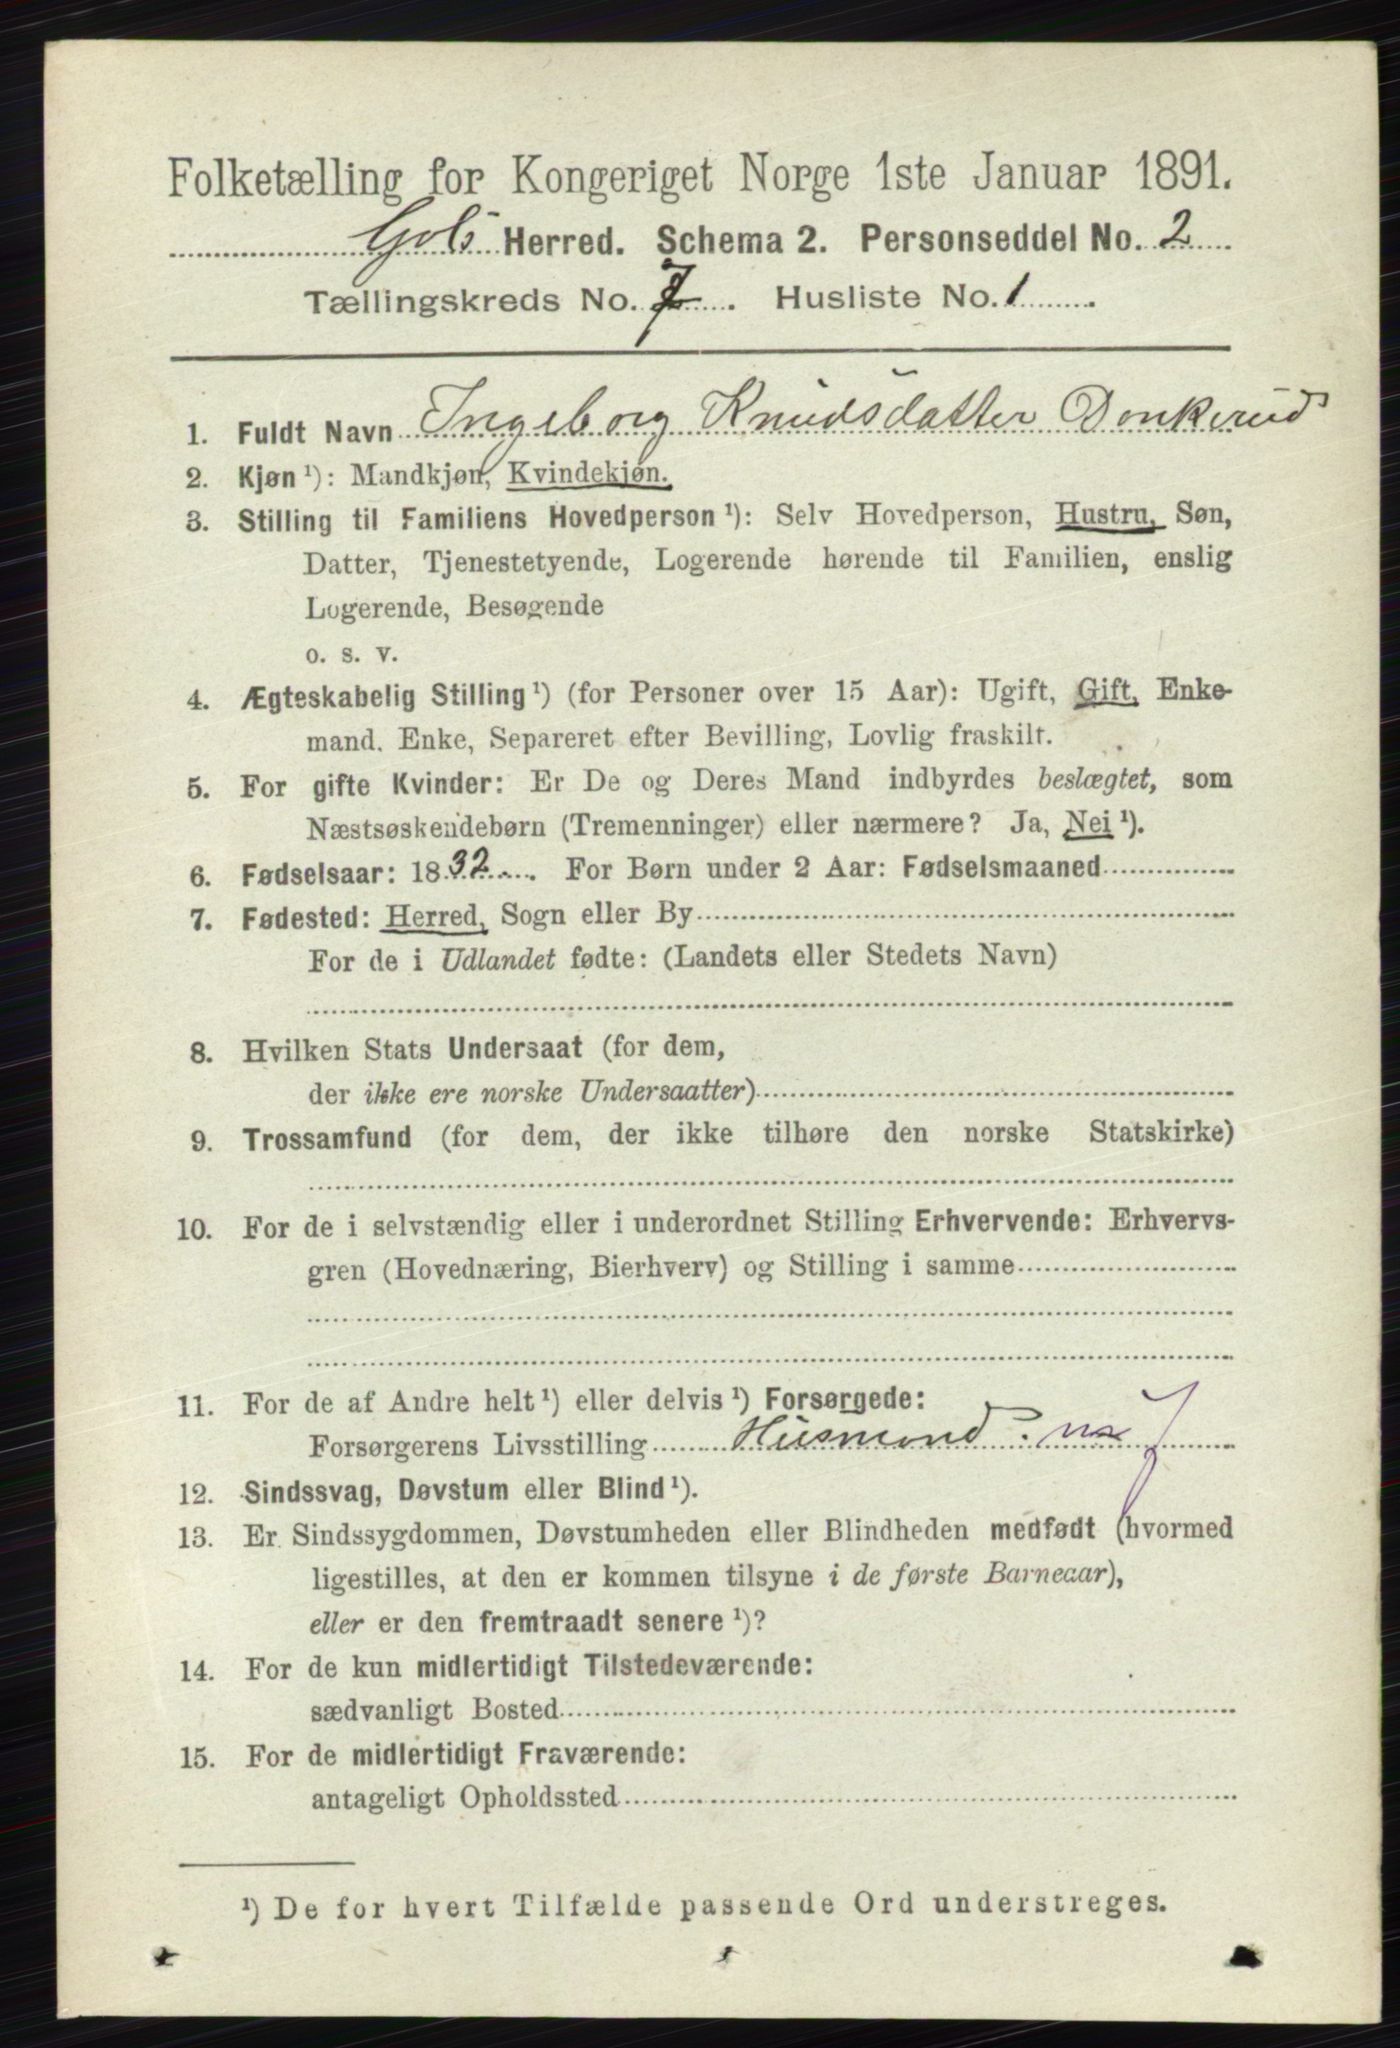 Folketælling for Kongeriget Norge 1ste Januar 1891.
Gols Herred. Schema 2. Personseddel No. 2
Tællingskreds No. 7. Husliste No. 1
1. Fuldt Navn Ingeborg Knudsdatter Donkerud
2. Kjøn¹): Mandkjøn, Kvindekjøn.
3. Stilling til Familiens Hovedperson¹): Selv Hovedperson, Hustru, Søn,
Datter, Tjenestetyende, Logerende hørende til Familien, enslig
Logerende, Besøgende
o. s. v.
4. Ægteskabelig Stilling¹) (for Personer over 15 Aar): Ugift, Gift, Enke-
mand, Enke, Separeret efter Bevilling, Lovlig fraskilt.
5. For gifte Kvinder: Er De og Deres Mand indbyrdes beslægtet, som
Næstsøskendebørn (Tremenninger) eller nærmere? Ja, Nei¹).
6. Fødselsaar: 1832. For Børn under 2 Aar: Fødselsmaaned
7. Fødested: Herred, Sogn eller By
For de i Udlandet fødte: (Landets eller Stedets Navn)
8. Hvilken Stats Undersaat (for dem,
der ikke ere norske Undersaatter)
9. Trossamfund (for dem, der ikke tilhøre den norske Statskirke)
10. For de i selvstændig eller i underordnet Stilling Erhvervende: Erhvervs-
gren (Hovednæring, Bierhverv) og Stilling i samme
11. For de af Andre helt¹) eller delvis¹) Forsørgede:
Forsørgerens Livsstilling Husmand.
12. Sindssvag, Døvstum eller Blind¹).
13. Er Sindssygdommen, Døvstumheden eller Blindheden medfødt (hvormed
ligestilles, at den er kommen tilsyne i de første Barneaar),
eller er den fremtraadt senere¹)?
14. For de kun midlertidigt Tilstedeværende:
sædvanligt Bosted
15. For de midlertidigt Fraværende:
antageligt Opholdssted
¹) De for hvert Tilfælde passende Ord understreges.